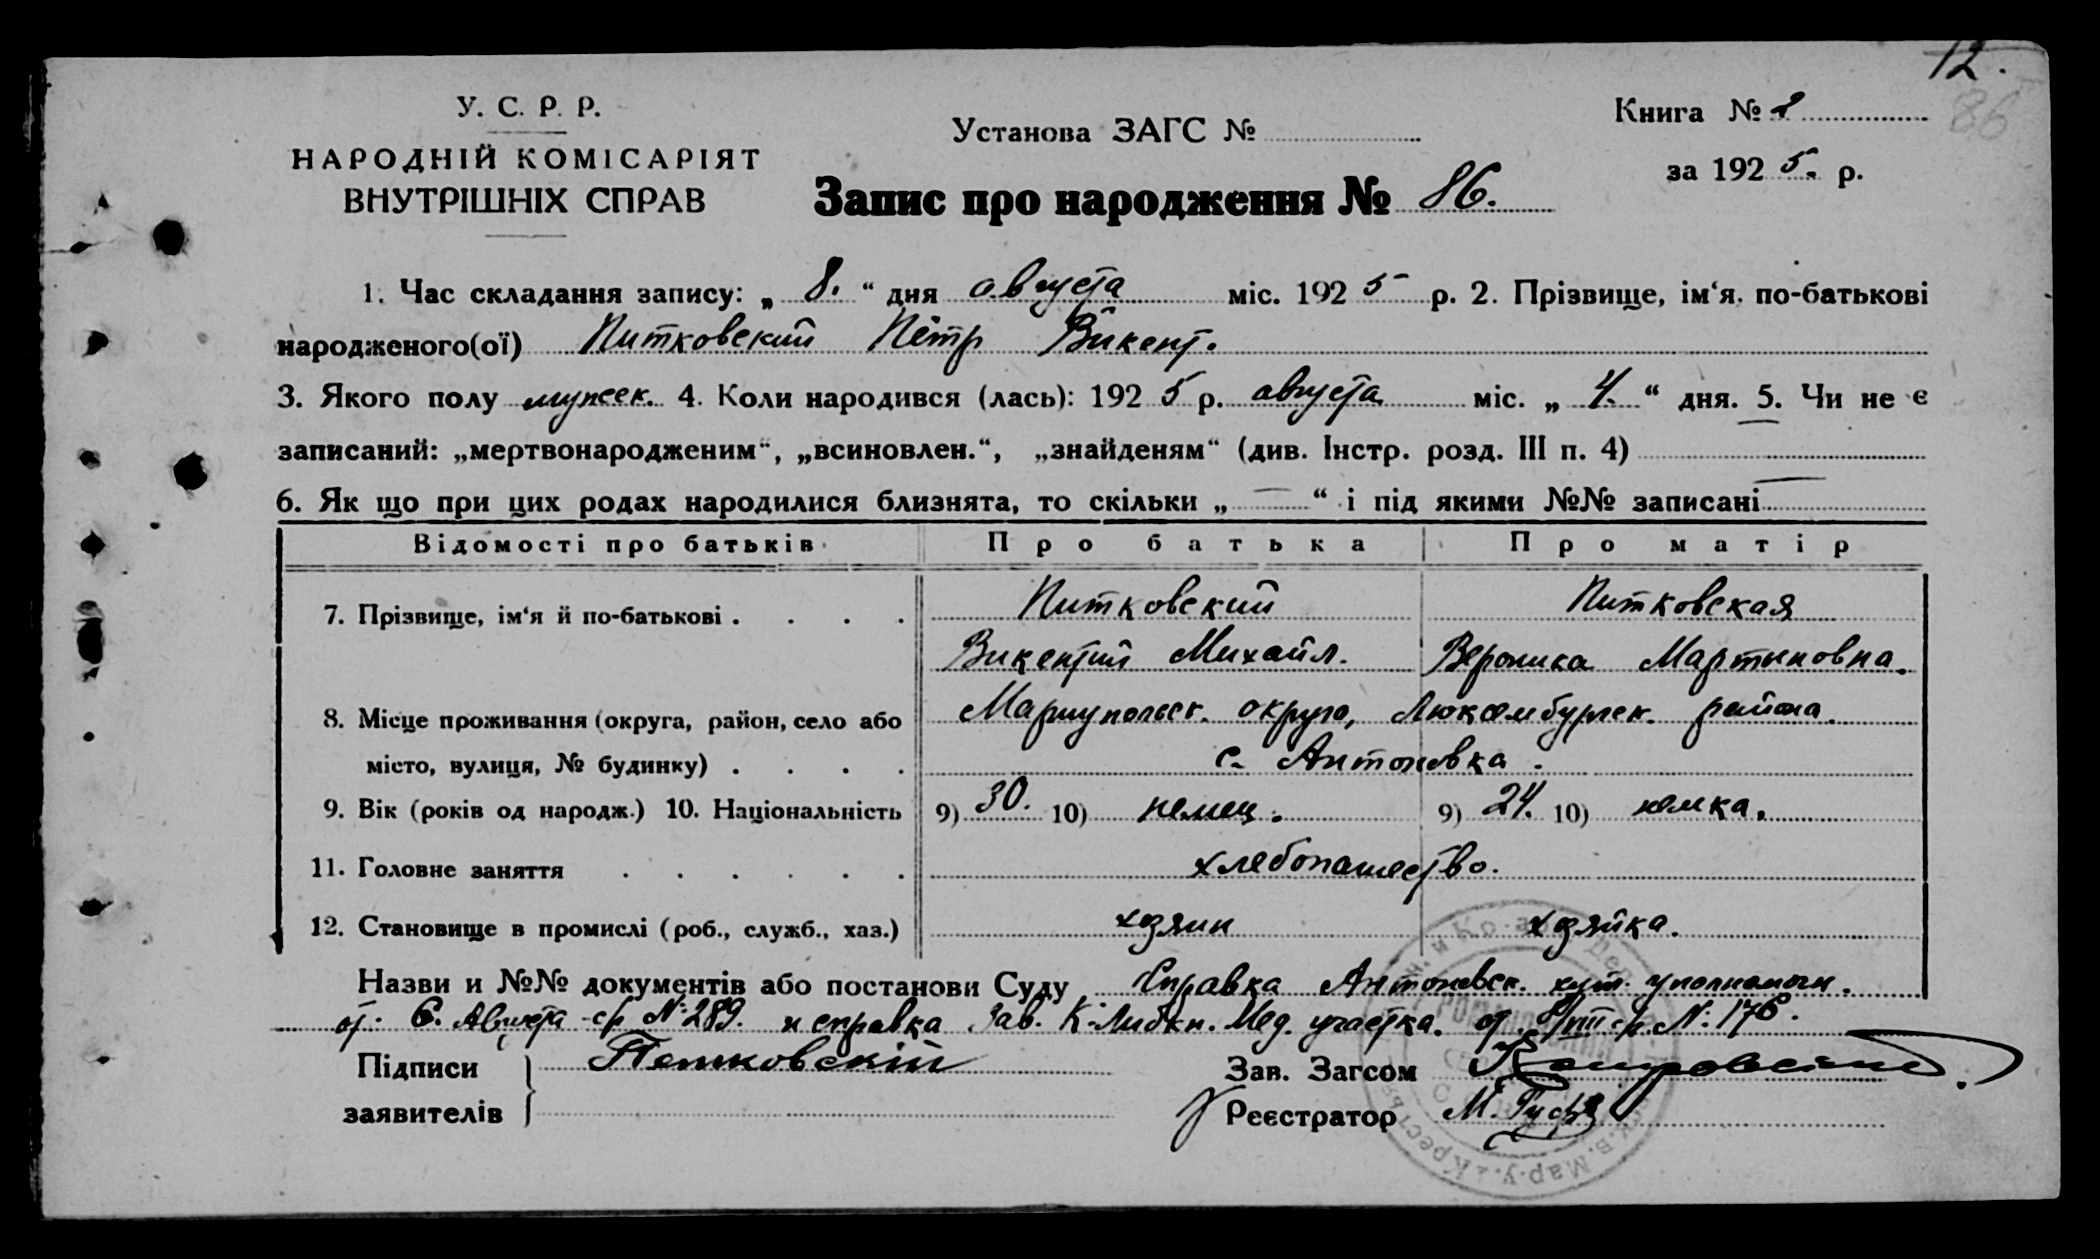 12.
86
У. С. Р. Р.
НАРОДНІЙ КОМІСАРІЯТ
ВНУТРІШНІХ СПРАВ
Установа ЗАГС №
Книга № 2
за 1925. р.
Запис про народження № 86.
1. Час складання запису: „ 8. “ дня августа міс. 1925 р. 2. Прізвище, ім‘я, по-батькові
народженого(ої) Питковский Пётр Викент.
3. Якого полу мужеск. 4. Коли народився (лась): 1925 р. августа міс. „ 4. “ дня. 5. Чи не є
записаний: „мертвонародженим“, „всиновлен.“, „знайденям“ (див. Інстр. розд. III п. 4)
6. Як що при цих родах народилися близнята, то скільки „ — “ і під якими №№ записані —
Відомості про батьків Про батька Про матір
7. Прізвище, ім‘я й по-батькові . . . . Питковский Питковская
Викентий Михайл. Вероника Мартыновна.
8. Місце проживання (округа, район, село або Мариупольск. округа, Люксембургск. района.
місто, вулиця, № будинку) . . . . с. Антоновка.
9. Вік (років од народж.) 10. Національність 9) 30. 10) немец. 9) 24. 10) немка.
11. Головне заняття . . . . . . хлебопашество.
12. Становище в промислі (роб., служб., хаз.) хозяин хозяйка.
Назви и №№ документів або постанови Суду Справка Антоновск. хут. уполномоч.
от 6. Августа с/г №289. и справка Зав. К-Либкн. Мед. участка. от 8/VIII с/г №176.
Підписи Петковскій Зав. Загсом
заявителів Реєстратор М.